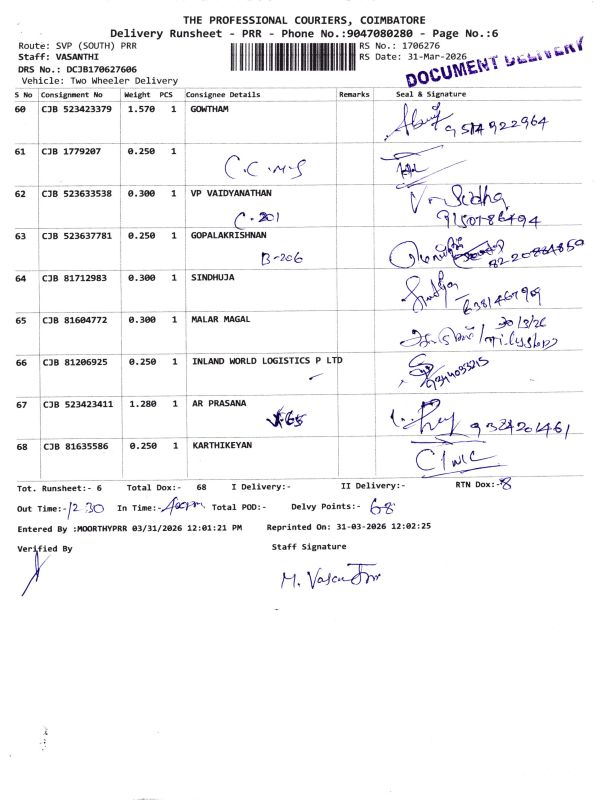 THE PROFESSIONAL COURIERS, COIMBATORE
Delivery Runsheet - PRR - Phone No.:9047080280 - Page No.:6
Route: SVP (SOUTH) PRR RS No.: 1706276
Staff: VASANTHI RS Date: 31-Mar-2026
DRS No.: DCJB170627606 DOCUMENT DELIVERY
Vehicle: Two Wheeler Delivery
S No Consignment No Weight PCS Consignee Details Remarks Seal & Signature
60 CJB 523423379 1.570 1 GOWTHAM
9514922964
61 CJB 1779207 0.250 1
C.C.M.S
62 CJB 523633538 0.300 1 VP VAIDYANATHAN
C-201 9150786494
63 CJB 523637781 0.250 1 GOPALAKRISHNAN
B-206
64 CJB 81712983 0.300 1 SINDHUJA
6381467909
65 CJB 81604772 0.300 1 MALAR MAGAL
30/3/26
66 CJB 81206925 0.250 1 INLAND WORLD LOGISTICS P LTD
67 CJB 523423411 1.280 1 AR PRASANA
9324201461
68 CJB 81635586 0.250 1 KARTHIKEYAN
Tot. Runsheet:- 6 Total Dox:- 68 I Delivery:- II Delivery:- RTN Dox:-8
Out Time:-12.30 In Time:- Total POD:- Delvy Points:- 68
Entered By :MOORTHYPRR 03/31/2026 12:01:21 PM Reprinted On: 31-03-2026 12:02:25
Verified By Staff Signature
M. Vasanthi